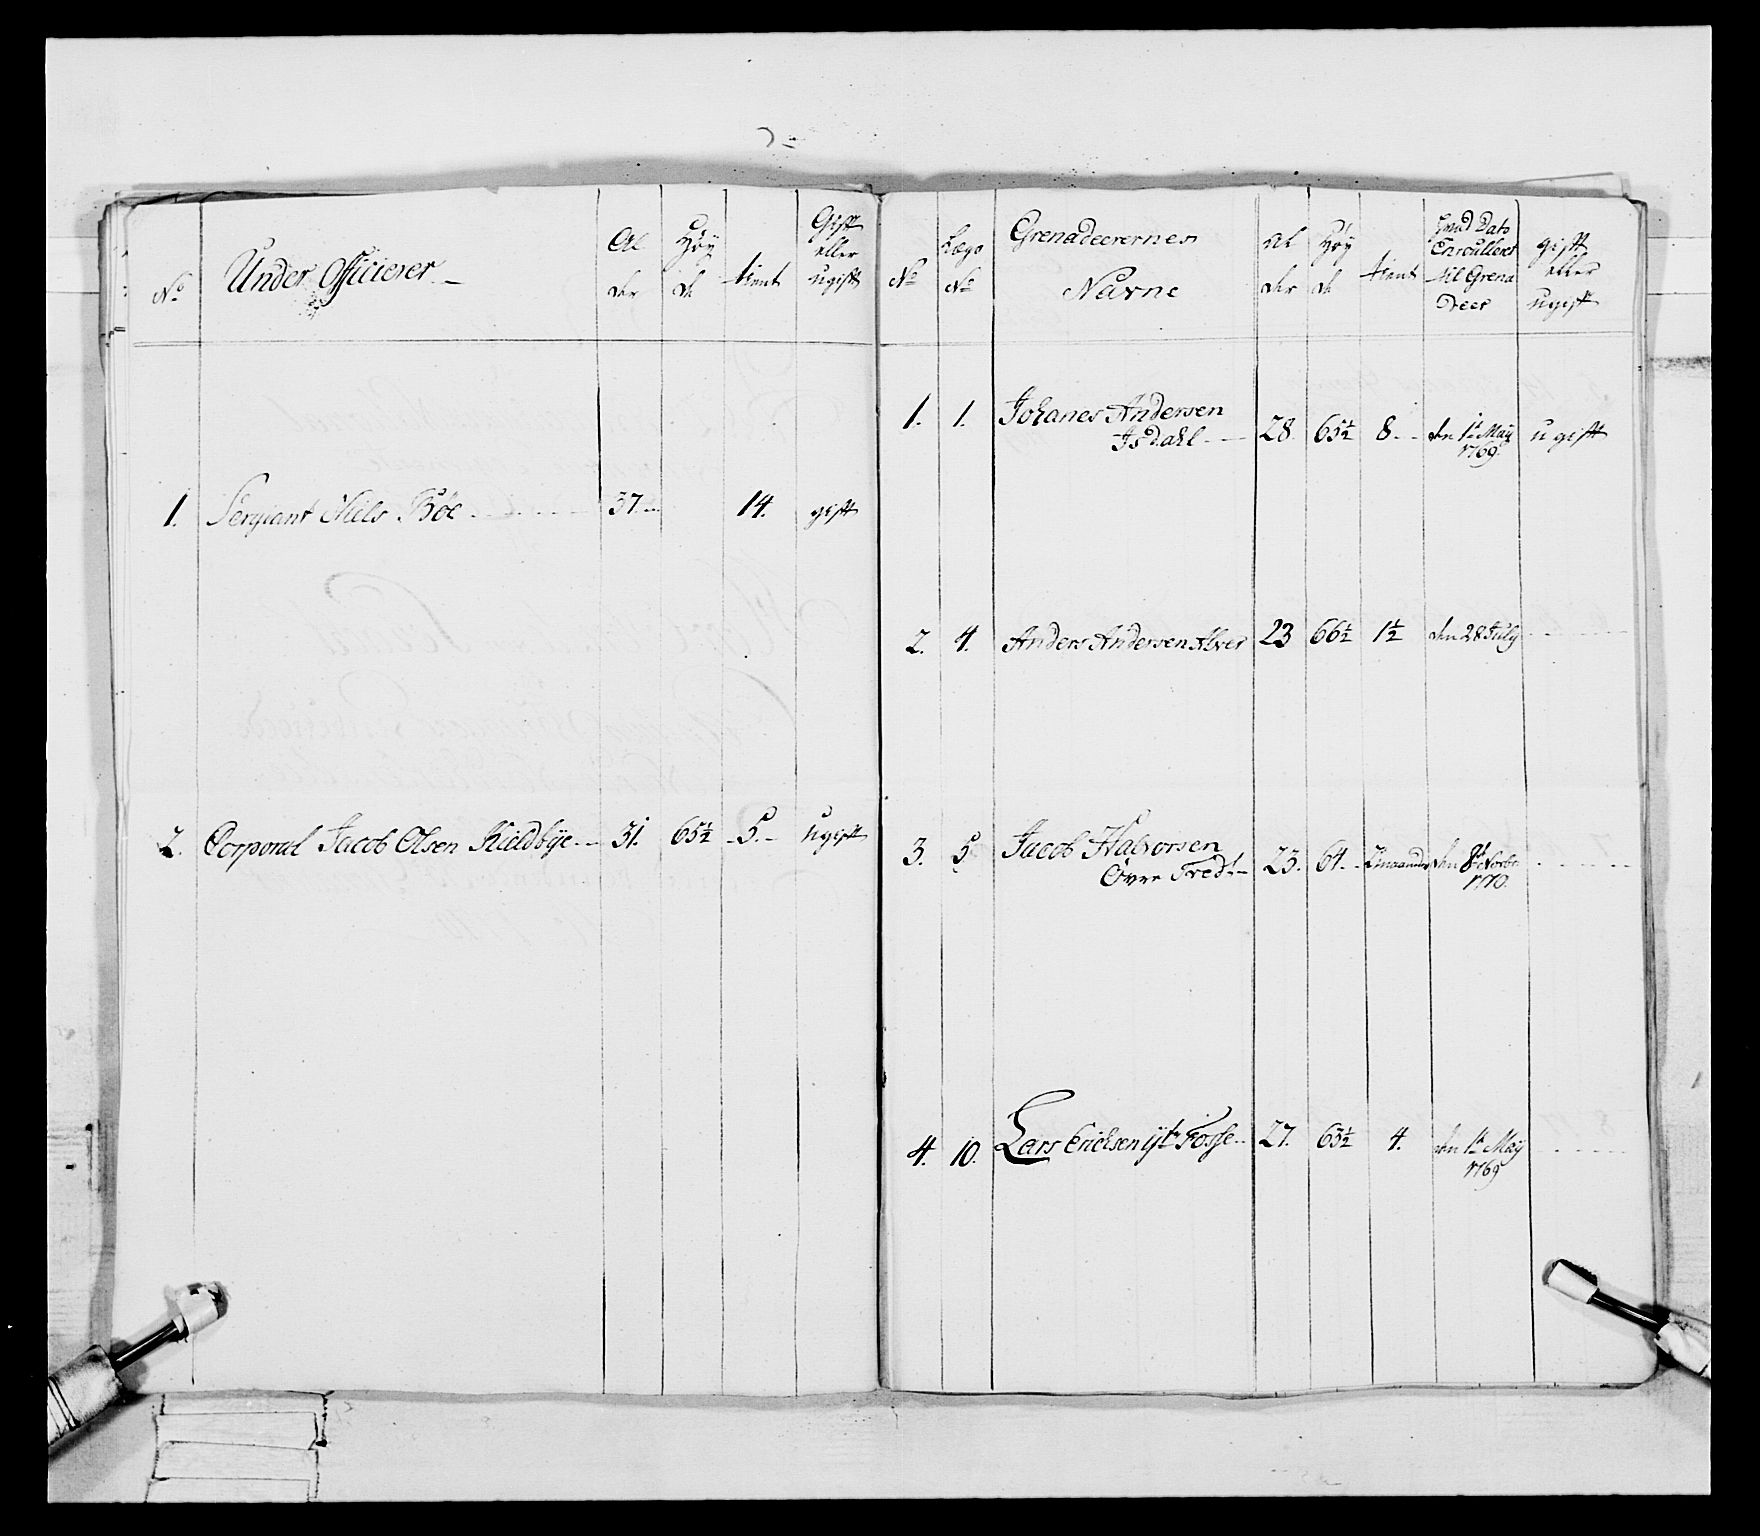 No
Under Officierer
Al
der
Høy
de
tient
Gift
eller
ugift
1.
Sergiant Niels Bøe
37.
14.
gift
2.
Corporal Jacob Olsen Kieldbye
31.
65½
5.
ugift
No
Lægs
No
Grenadeerernes
Navne
Al
der
Høy
de
tient
Dato
Enroulleret
til Grena
deer
gift
eller
ugift
1.
1.
Johanes Andersen
Isdahl
28.
65½
8.
den 1t May
1769.
ugift
2.
4.
Anders Andersen Alver
23
66½
1½
den 28 July
3.
5.
Jacob Halvorsen
Øvre
23.
64.
2 maaneder
den 8t Novbr.
1770.
4.
10.
Lars Ericksen ijt. Fosse
27.
63½
4.
den 1t May
1769